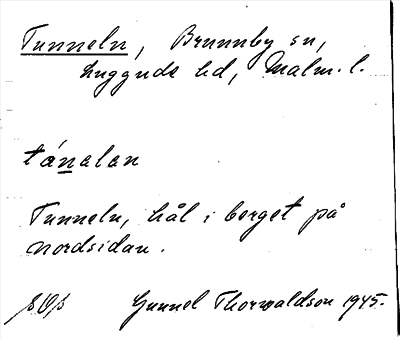 Tunneln, Brunnby sn,
Luggude hd, Malm. l.
tánalan
Tunneln, hål i berget på
nordsidan.
Gunnel Thorwaldson 1945.